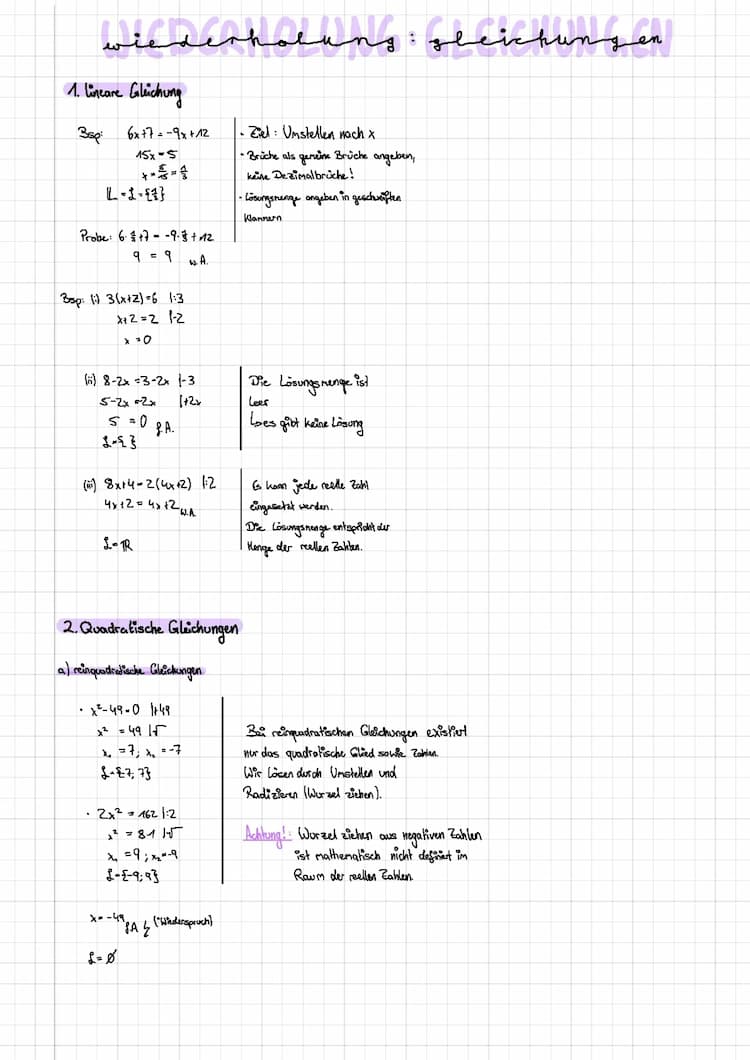 wiederholung: gleichungen
1. lineare Gleichung
Bsp: 6x+7=-9x+12
15x=5
x=5/15=1/3
L=L={1/3}
Probe: 6·1/3+7=-9·1/3+12
9 = 9 w.A.
· Ziel: Umstellen nach x
· Brüche als gemeine Brüche angeben,
keine Dezimalbrüche!
· Lösungsmenge angeben in geschweiften
Klammern
Bsp: (i) 3(x+2)=6 |:3
x+2=2 |-2
x=0
(ii) 8-2x=3-2x |-3
5-2x=2x |+2x
5=0 f.A.
L={ }
Die Lösungsmenge ist
Leer
↳ es gibt keine Lösung
(iii) 8x+4=2(4x+2) |:2
4x+2=4x+2 w.A
L=ℝ
Es kann jede reelle Zahl
eingesetzt werden.
Die Lösungsmenge entspricht der
Menge der reellen Zahlen.
2. Quadratische Gleichungen
a) reinquadratische Gleichungen
· x²-49=0 |+49
x² =49 |√
x₁=7; x₂=-7
L={-7; 7}
· 2x²=162 |:2
x²=81 |√
x₁=9; x₂=-9
L={-9; 9}
Bei reinquadratischen Gleichungen existiert
nur das quadratische Glied sowie Zahlen.
Wir lösen durch Umstellen und
Radizieren (Wurzel ziehen).
Achtung!: Wurzel ziehen aus negativen Zahlen
ist mathematisch nicht definiert im
Raum der reellen Zahlen.
x=-49 f.A ↯ (Wiederspruch)
L=∅